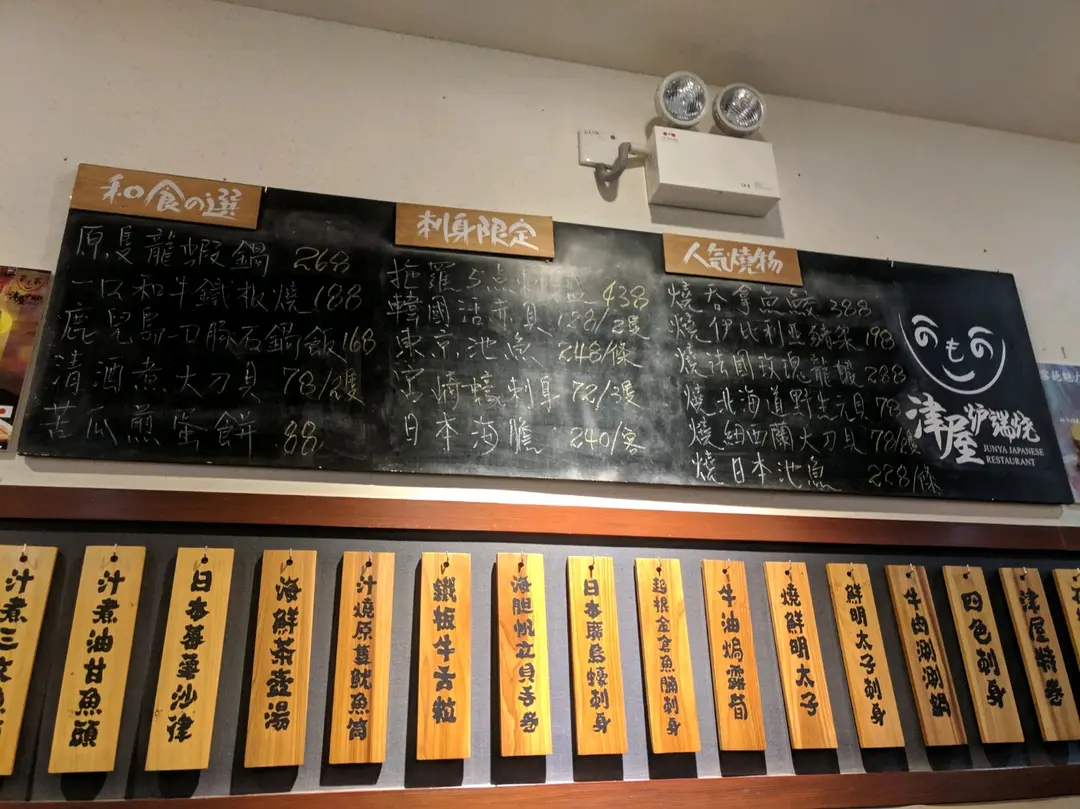 和食の選
原隻龍蝦鍋 268
一口和牛鐵板燒 188
鹿兒島一刀豚石鍋飯 168
清酒煮大刀貝 78/隻
苦瓜煎蛋餅 88
刺身限定
拖羅5点刺 盛 438
韓國活赤貝 128/2隻
東京池魚 248/條
宮崎蠔刺身 72/3隻
日本海膽 240/客
人気燒物
燒吞拿魚鮫 388
燒伊比利亞豬架 198
燒法國玫瑰龍蝦 288
燒北海道野生元貝 78
燒紐西蘭大刀貝 78/隻
燒日本池魚 228/條
津屋炉端焼
JUNYA JAPANESE
RESTAURANT
汁煮三文魚
汁煮油甘魚頭
日本蕃薯沙律
海鮮茶壺湯
汁燒原隻魷魚筒
鐵板牛舌粒
海胆帆立貝手卷
日本廣島蠔刺身
起根金倉魚腩刺身
牛油焗露筍
燒鮮明太子
鮮明太子刺身
牛肉涮涮鍋
四色刺身
津屋特卷